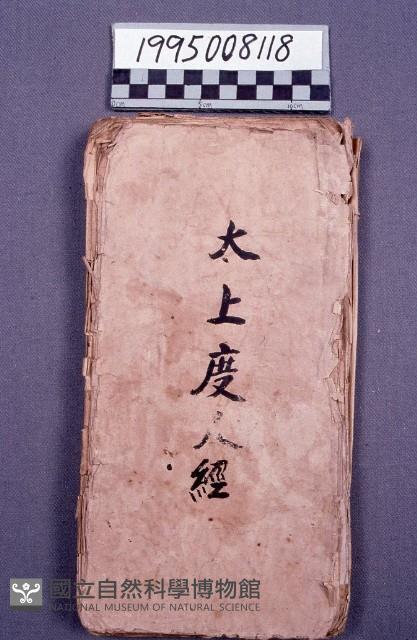 1995008118
0cm
5cm
10cm
太上度人經
國立自然科學博物館
NATIONAL MUSEUM OF NATURAL SCIENCE